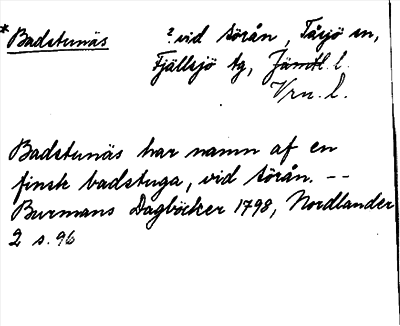 *Badstunäs ? vid Sörån, Tåsjö sn,
Fjällsjö tg, Jämtl. l.
Vrn. l.
Badstunäs har namn af en
finsk badstuga, vid Sörån. --
Burmans Dagböcker 1798, Nordlander
2 s. 96